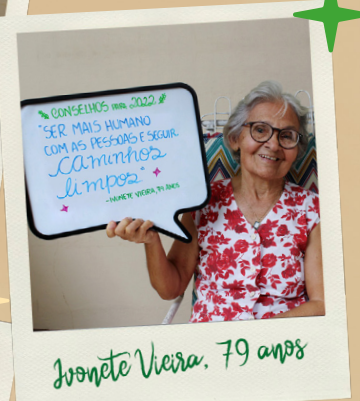 CONSELHOS PARA 2022
"SER MAIS HUMANO
COM AS PESSOAS E SEGUIR
caminhos
limpos"
- IVONETE VIEIRA, 79 ANOS
Ivonete Vieira, 79 anos